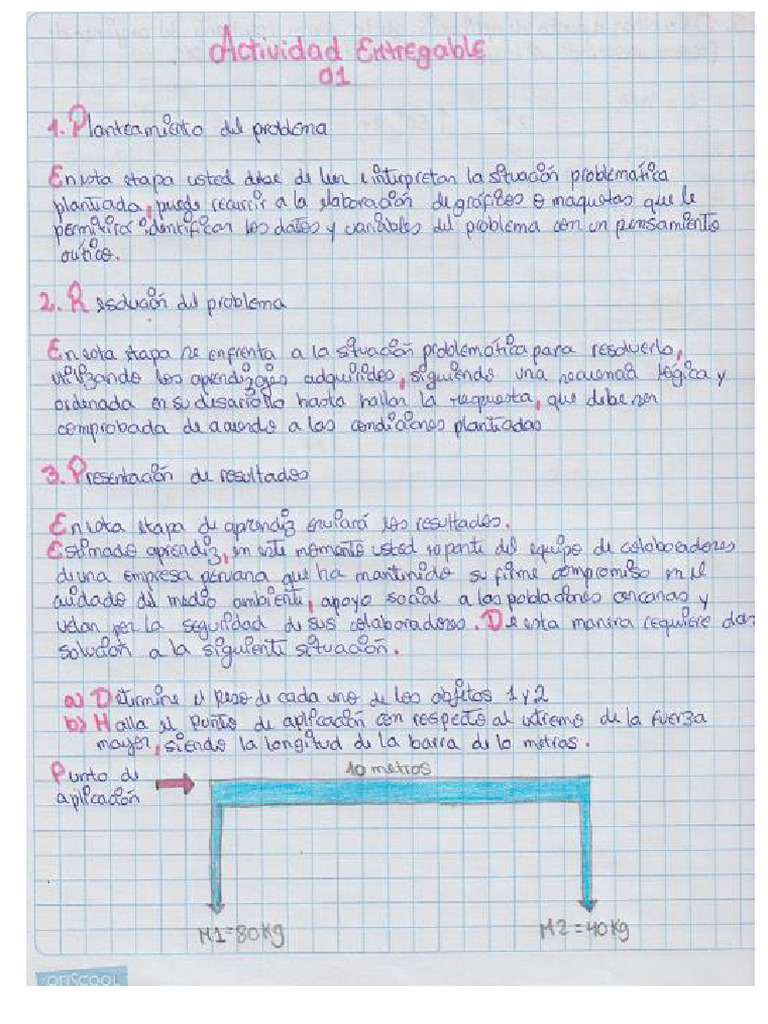 Actividad Entregable
01
1. Planteamiento del problema
En esta etapa usted debe de leer e interpretar la situación problemática
planteada, puede recurrir a la elaboración de gráficos o maquetas que le
permitirá identificar los datos y variables del problema con un pensamiento
crítico.
2. Resolución del problema
En esta etapa se enfrenta a la situación problemática para resolverlo,
utilizando los aprendizajes adquiridos, siguiendo una secuencia lógica y
ordenada en su desarrollo hasta hallar la respuesta, que debe ser
comprobada de acuerdo a las condiciones planteadas
3. Presentación de resultados
En esta etapa de aprendiz enviará los resultados.
Estimado aprendiz, en este momento usted es parte del equipo de colaboradores
de una empresa peruana que ha mantenido su firme compromiso en el
cuidado del medio ambiente, apoyo social a las poblaciones cercanas y
velan por la seguridad de sus colaboradores. De esta manera requiere dar
solución a la siguiente situación.
a) Determine el peso de cada uno de los objetos 1 y 2
b) Halla el punto de aplicación con respecto al extremo de la fuerza
mayor, siendo la longitud de la barra de 10 metros.
Punto de
aplicación
10 metros
M1=80Kg
M2=40Kg
OFISCOOL